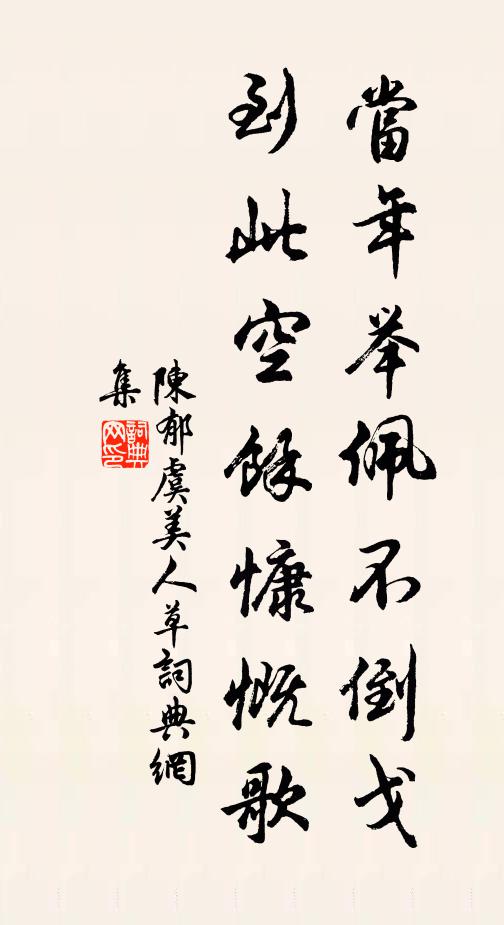 當年举佩不倒戈
到此空餘慷慨歌
陳郁虞美人草詞典網
集
詞典
网印